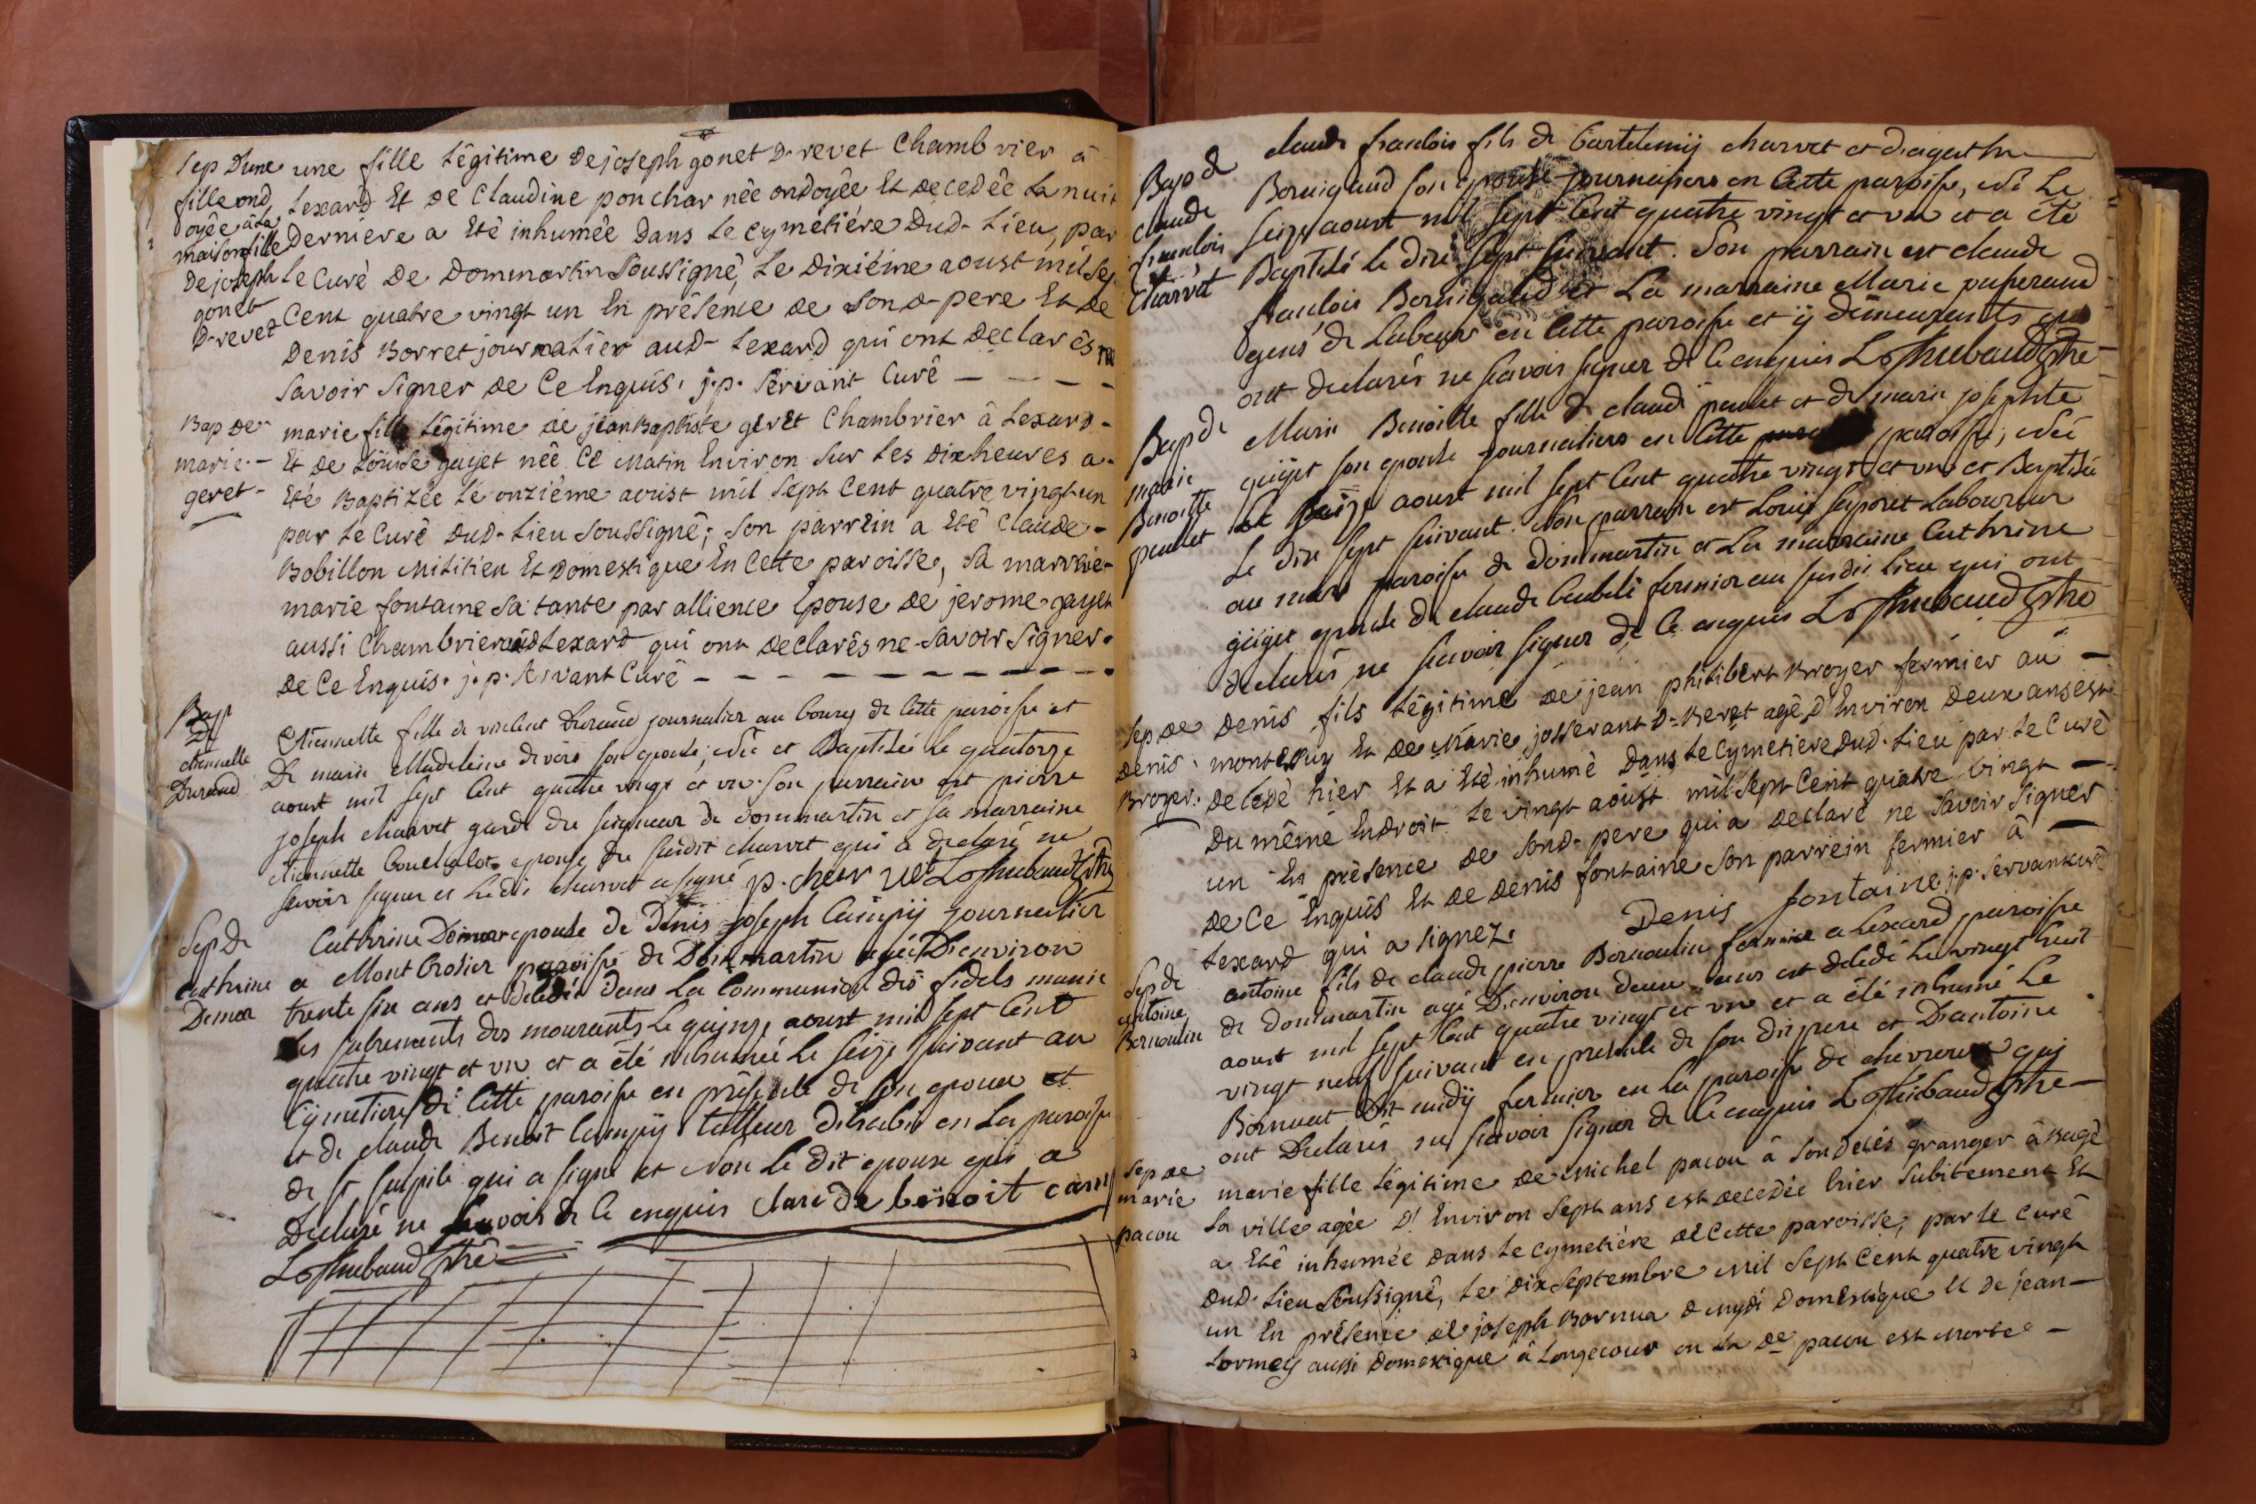 Sep D'une
fille ond
oyée a La
maison fille
De joseph
gonet
D-revet
une fille Légitime De joseph gonet D-revet Chambrier à
Lexard Et De Claudine ponchar née ondoyée Et Decedée La nuit
Derniere a Eté inhumée Dans Le Cymétiére Dud- Lieu, par
Le Curé De Dommartin Soussigné, Le Dixiéme aoust mil Sep
Cent quatre vingt un En présence De Son d-pere Et De
Denis Borret journalier aud- Lexard qui ont Declarés ne
Savoir Signer De Ce Enquis. j.p. Servant Curé
Bap De
marie
geret
marie fille Légitime de jean Baptiste geret Chambrier à Lexard-
Et De Loüise gayet née Ce Matin Environ Sur Les Dix heures a
Eté Baptizée Le onziéme aoust mil Sept Cent quatre vingt un
par Le Curé Dud- Lieu Soussigné; Son parrein a Eté Claude
Bobillon Militien Et Domestique En Cette paroisse, Sa marreine
marie fontaine Sa tante par allience Epouse De jerome gayet
aussi Chambrier aud Lexard qui ont Declarés ne Savoir Signer
De Ce Enquis. j.p. Servant Curé
Bap
De
etiennette
Durand
Etiennette fille de vincent Durand journalier au bourg de Cette paroisse et
De marie Madeleine divers son epouse; née et Baptisée Le quatorze
aoust mil sept Cent quatre vingt et un. son parrain est pierre
joseph charvet garde du seigneur de dommartin et sa marraine
etiennette Couchalot epouse du susdit charvet qui a declaré ne
savoir signer et Ledit charvet a signé p. charvet Losthiebaud ptre
Sep De
Cathrine
Demor
Cathrine Demor epouse de Denis joseph Campiÿ journalier
a Mont Crosier paroisse de Dommartin agée D'environ
trente six ans et decedée dans La Communion des fidels munie
des sacrements des mourants Le quinze aoust mil sept Cent
quatre vingt et un et a été inhumée Le seize suivant au
Cymetiere de Cette paroisse en présence de son epoux et
et de claude Benoit Campiÿ talleur d'habit en La paroisse
de St sulpice qui a signé et non Le dit epoux qui a
Declaré ne scavoir de Ce enquis claude benoit camp
Losthiebaud ptre
Bap de
claude
francois
Charvet
claude francois fils de bartelemiÿ charvet et d'agathe
Bernigaud son epouse journaliers en Cette paroisse, né Le
seize aoust mil sept Cent quatre vingt et un et a été
Baptisé le dix sept suivant. Son parrain est claude
francois Bernigaud et La marraine Marie puperaud
gens de Labeur en Cette paroisse et ÿ demeurants qui
ont declarés ne scavoir signer de Ce enquis Losthiebaud ptre
Bap de
marie
Benoitte
paulet
Marie Benoitte fille de claude paulet et de marie josephte
guÿet son epouse journaliers en Cette paroisse, née
Le seize aoust mil sept Cent quatre vingt et un et Baptisée
Le dix sept suivant. Son parrain est Louis seporet Laboureur
au paroisse de dommartin et La marraine Cathrine
guÿet epouse de claude fermier au susdit lieu qui ont
declarés ne scavoir signer de Ce enquis Losthiebaud ptre
Sep De
Denis
Broyer
Denis fils Légitime De jean philibert Broyer fermier au
montepuy Et De Marie josserant D-Beret agé D'Environ Deux ans est
Decedé hier Et a Eté inhumé Dans Le Cymetiere Dud- Lieu par Le Curé
Du même Endroit Le vingt aoust mil Sept Cent quatre vingt
un En présence De Sond- pere qui a Declaré ne Savoir Signer
De Ce Enquis Et De Denis fontaine Son parrein fermier à
Lexard qui a Signez. Denis fontaine j.p. Servant curé
Sep de
Antoine
Bernoulin
antoine fils de claude pierre Bernoulin fermier a Lexard paroisse
de dommartin agé D'environ deux ans est decedé Le vingt huit
aoust mil sept Cent quatre vingt et un et a été inhumé Le
vingt neuf suivant en presence de son dit pere et D'antoine
Bornuat dit midÿ fermier en La paroisse de chevroux qui
ont Declarés ne scavoir signer de Ce enquis Losthiebaud ptre
Sep De
marie
pacou
marie fille Légitime De Michel pacou à Son Decés granger à Bagé
La ville agée D'Environ Sept ans est Decedée hier Subitement Et
a Eté inhumée Dans Le Cymetiére de Cette paroisse, par Le Curé
Dud- Lieu Soussigné, Le Dix Septembre Mil Sept Cent quatre vingt
un En présence de joseph Bornua d mydi Domestique Et De jean
Lormey aussi Domestique à Longecour ou La De pacou est Morte